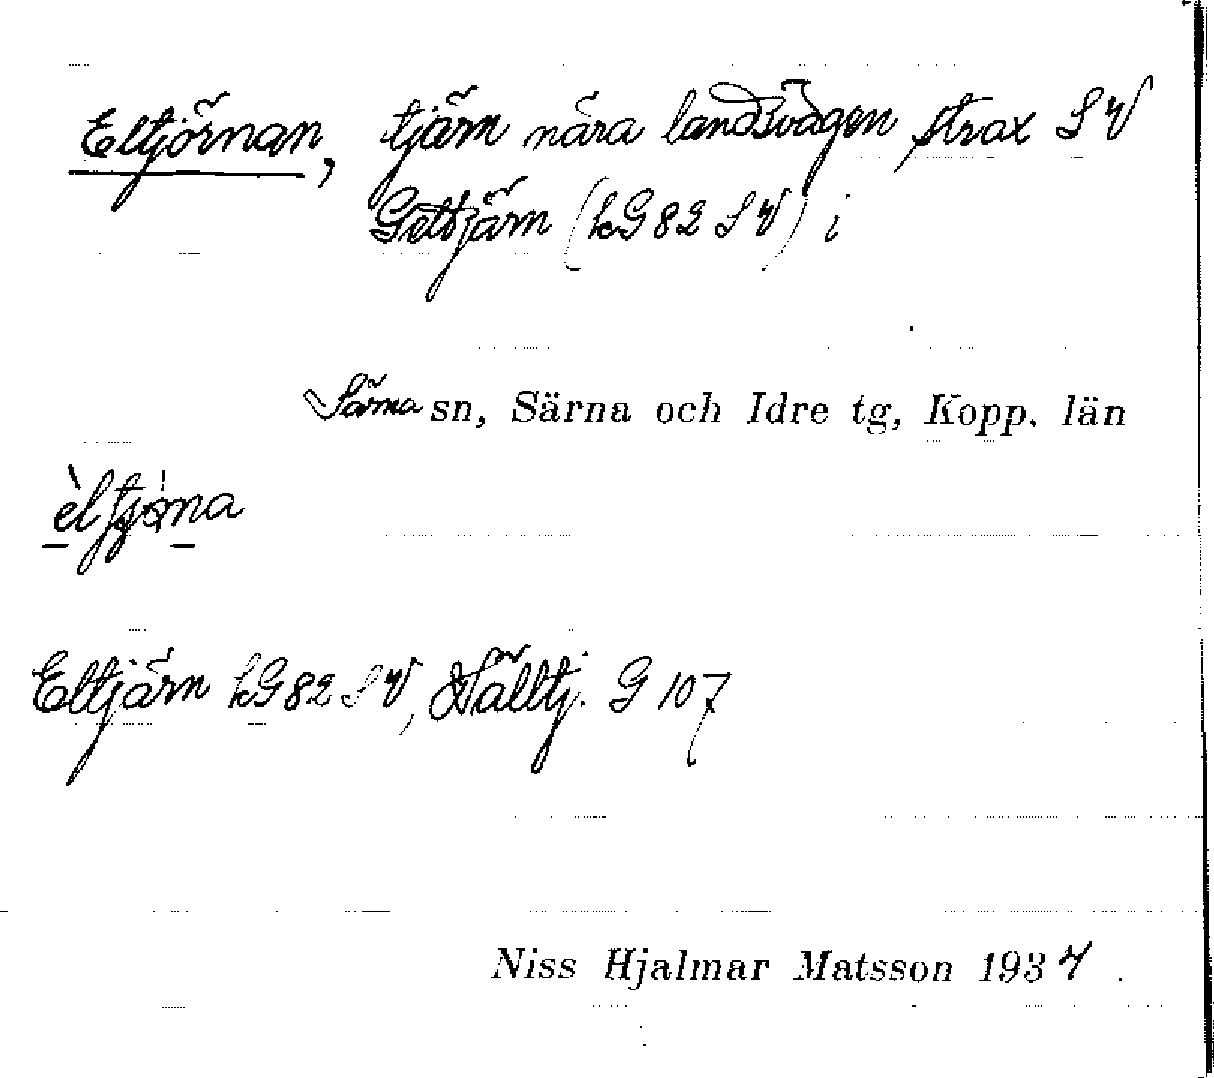 Eltjörnan, tjärn nära landsvägen strax SV
Getbjärn (kG 82 SV) i
Särna sn, Särna och Idre tg, Kopp. län
èltjɷna
Eltjärn kG 82 SV, Hälltj. G 107
Niss Hjalmar Matsson 1937.